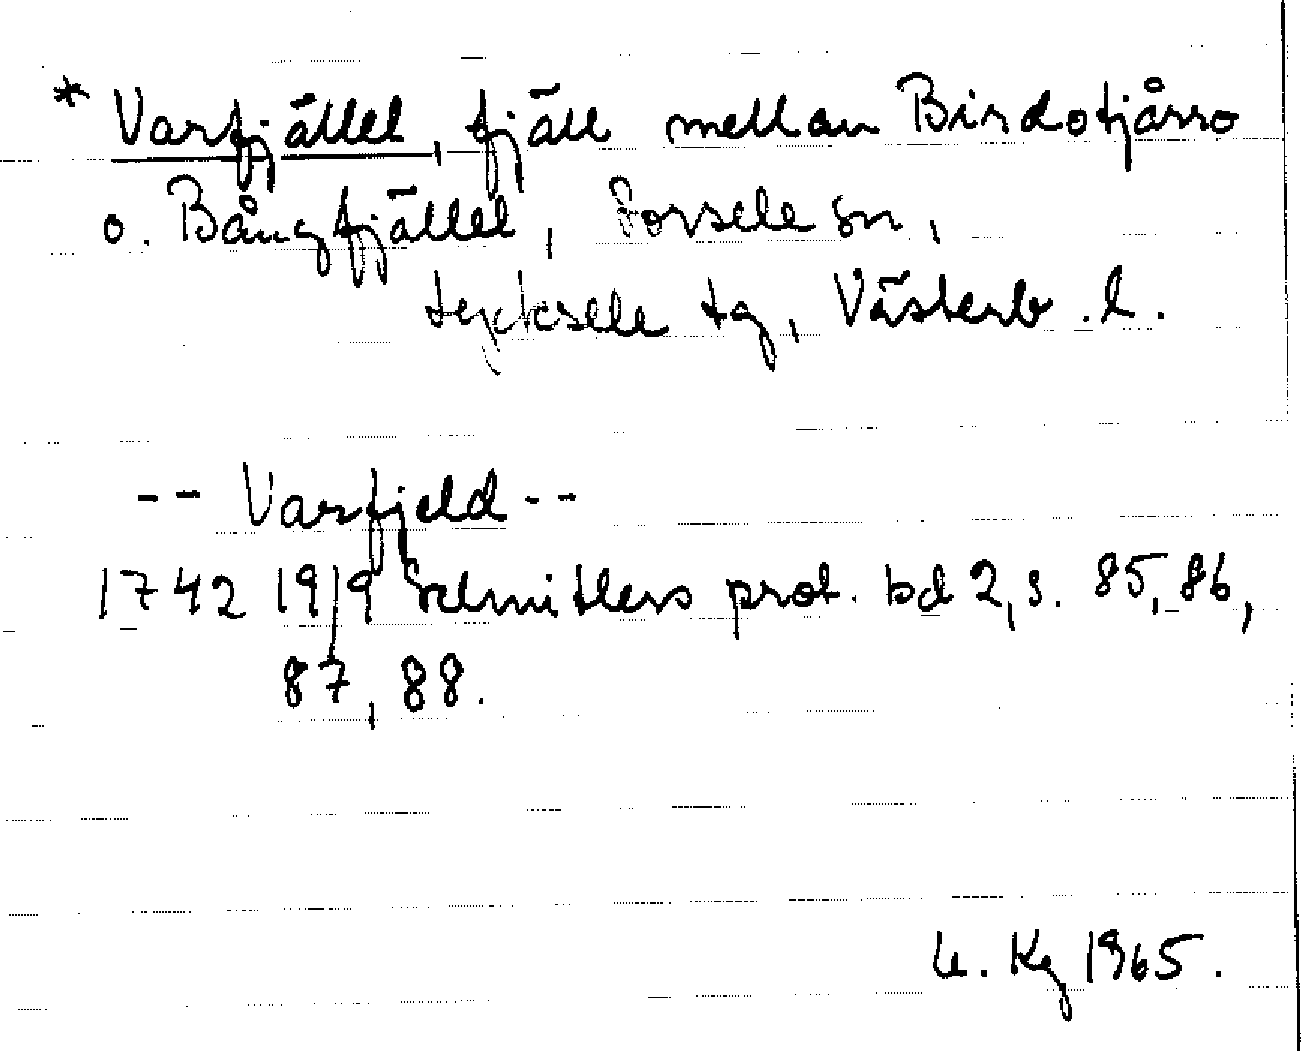 * Varfjället, fjäll mellan Birdotjårro
o. Bångfjället, Dorsele sn,
Lycksele tg, Västerb. l.
-- Varfjeld --
1742 19/9 Schnitlers prot. bd 2, s. 85, 86,
87, 88.
U. Kg 1965.